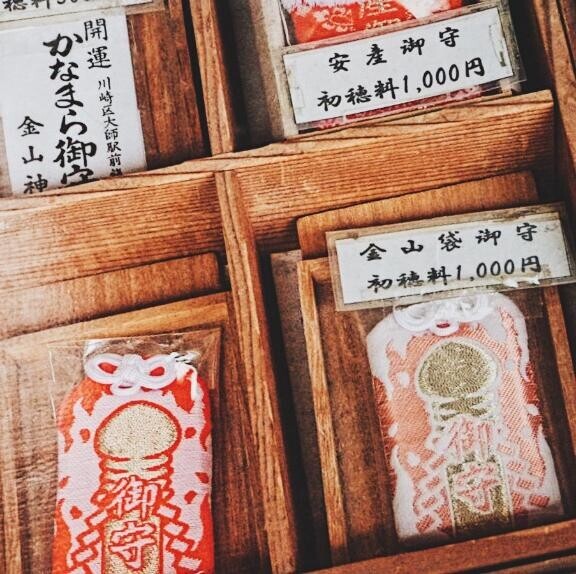 開運
川崎区大師駅前
かなまら御守
金山神
安産御守
初穂料1,000円
金山袋御守
初穂料1,000円
御守
御守